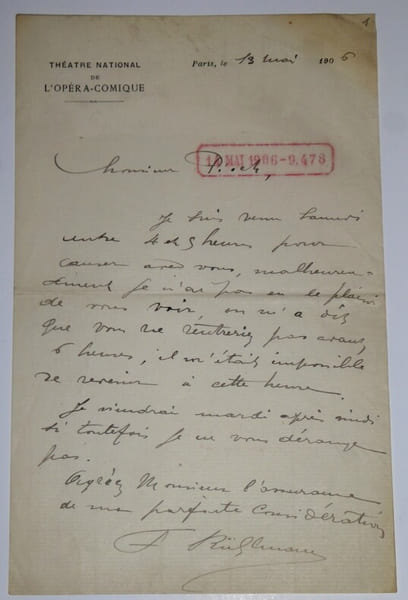 1
THÉATRE NATIONAL
DE
L'OPÉRA-COMIQUE
Paris, le 13 mai 1906
14 MAI 1906-9.478
Monsieur
Je suis venu Samedi
entre 4 et 5 heures pour
causer avec vous, malheureu-
sement je n'ai pas eu le plaisir
de vous voir, on m'a dit
que vous ne rentreriez pas avant
6 heures, il m'était impossible
de revenir à cette heure.
Je viendrai mardi après midi
si toutefois je ne vous dérange
pas.
Agréez Monsieur l'assurance
de ma parfaite Considération
F Rühlmann